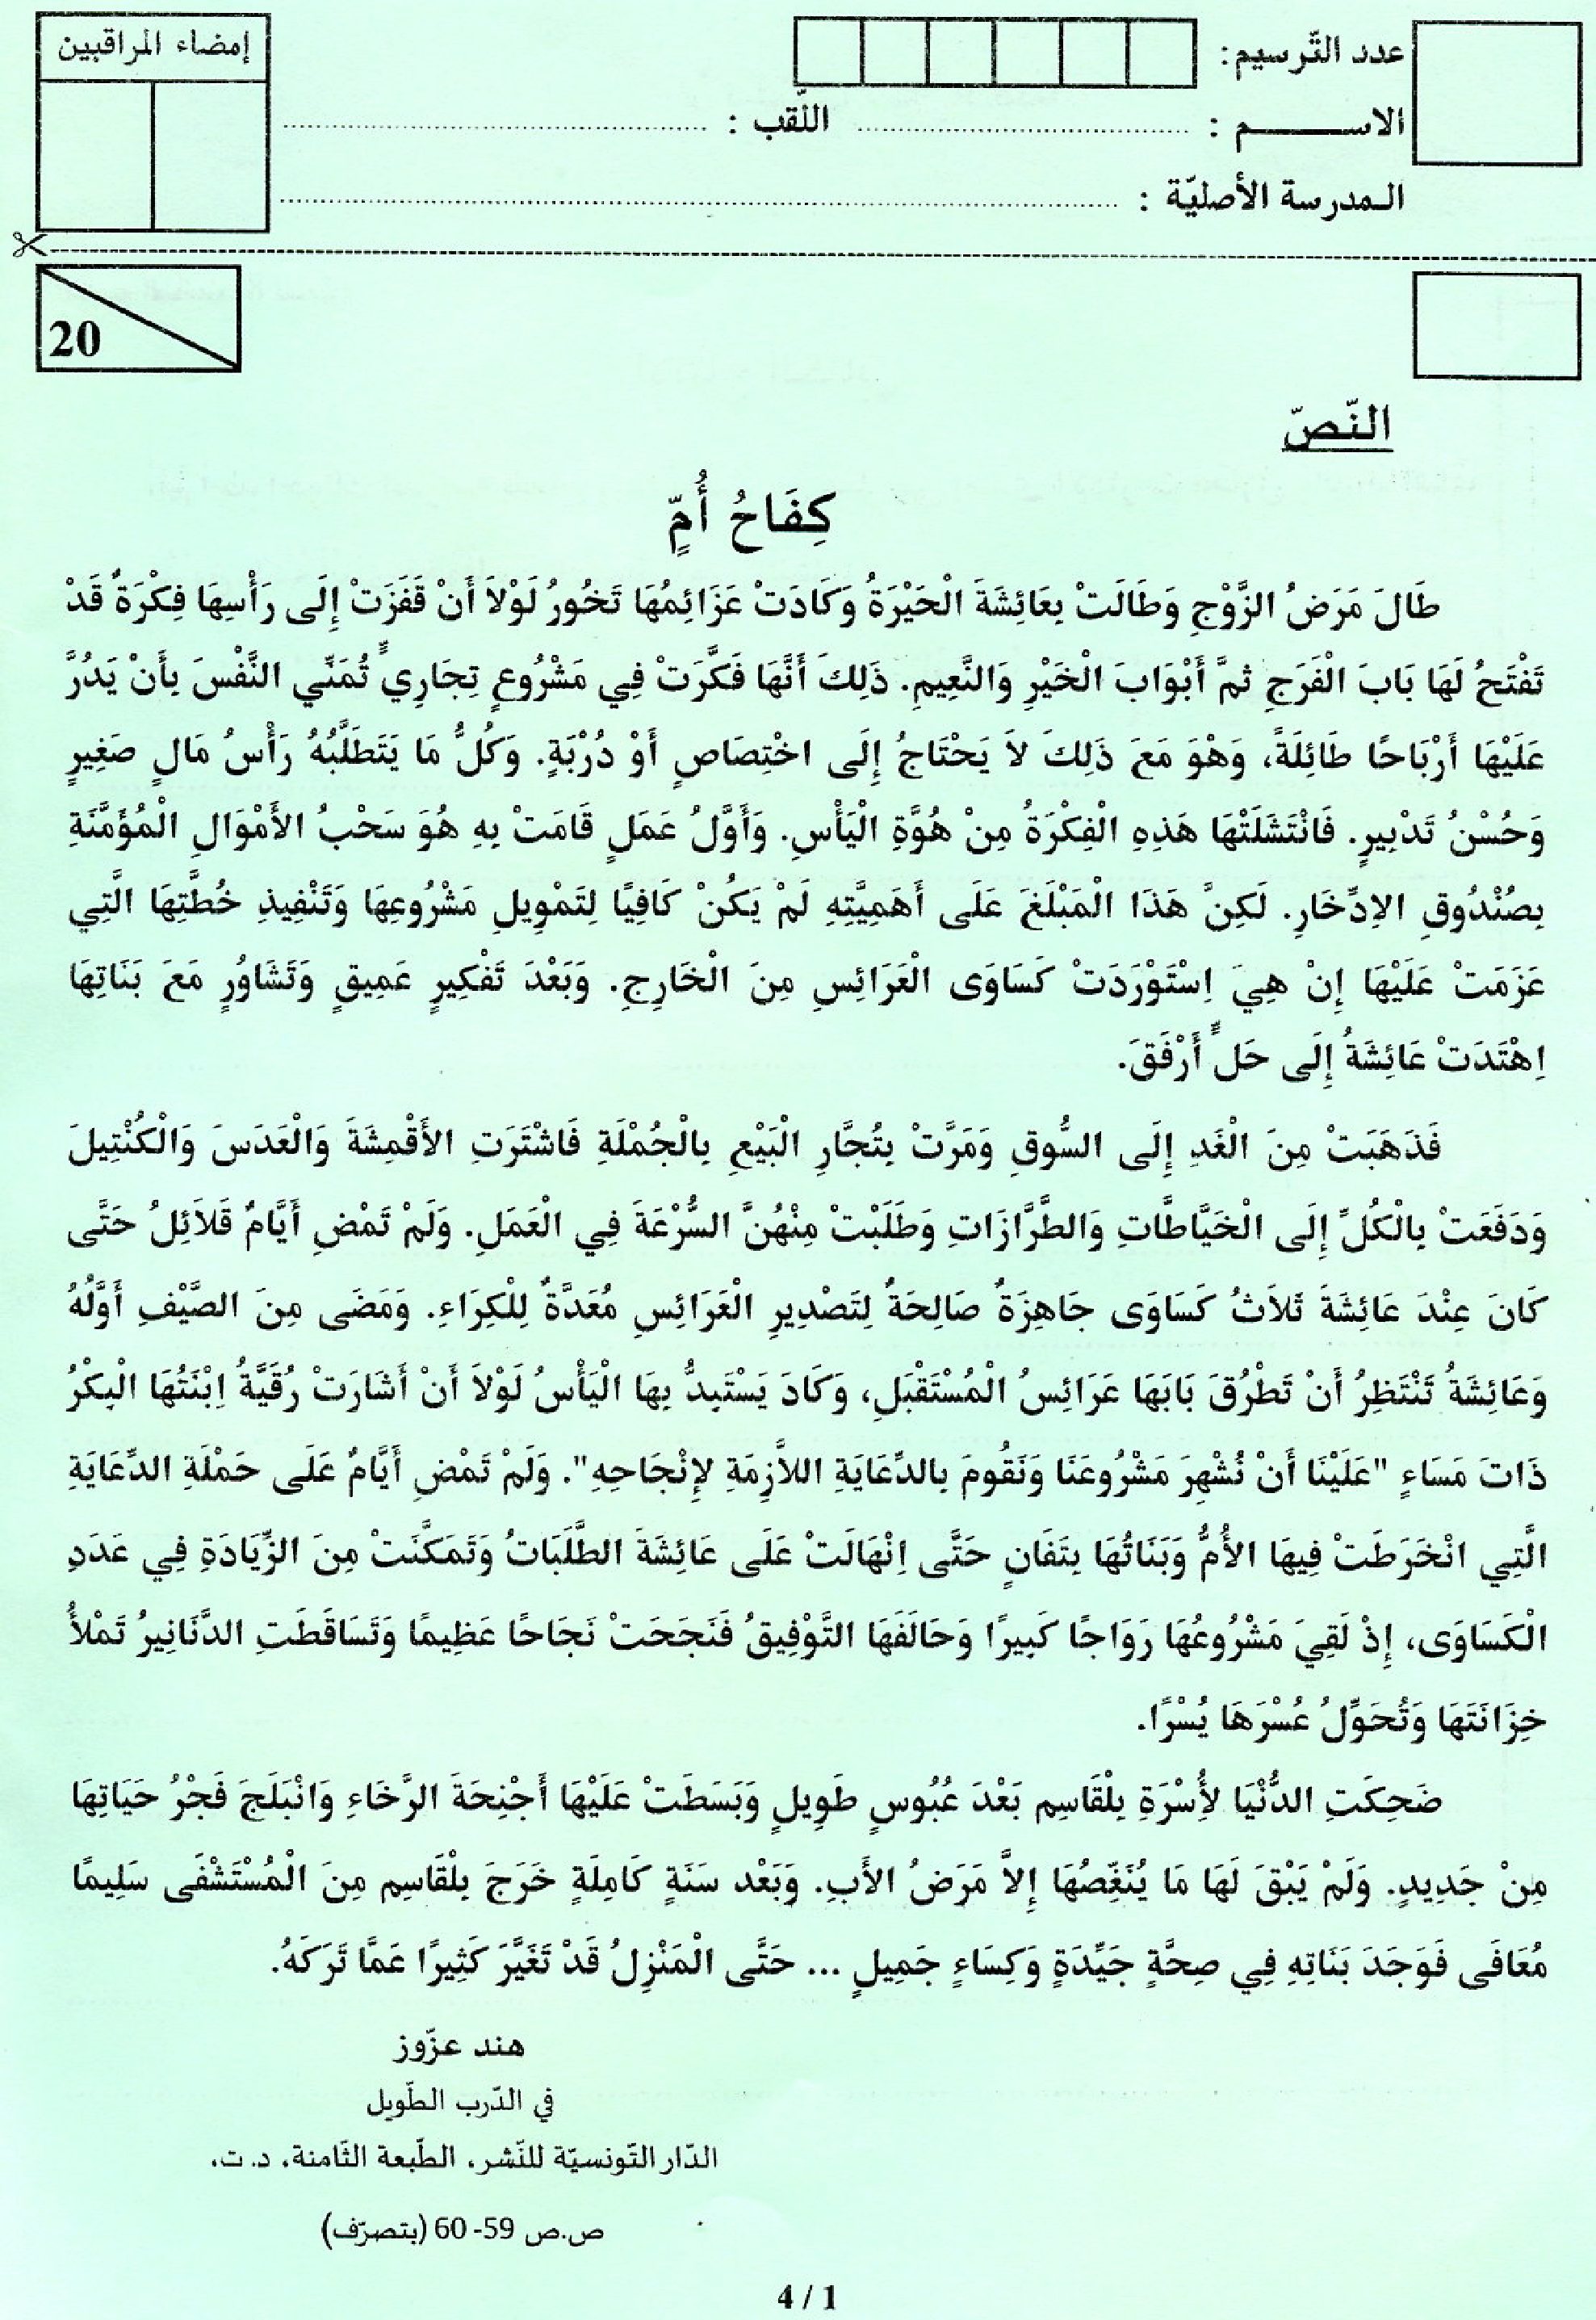 عدد التّرسيم:
إمضاء المراقبين
الاســـــم : .................... اللّقب : ....................
المدرسة الأصليّة : ....................
20
النّصّ
كِفَاحُ أُمٍّ
طَالَ مَرَضُ الزَّوْجِ وَطَالَتْ بِعَائِشَةَ الْحَيْرَةُ وَكَادَتْ عَزَائِمُهَا تَخُورُ لَوْلاَ أَنْ قَفَزَتْ إِلَى رَأْسِهَا فِكْرَةٌ قَدْ
تَفْتَحُ لَهَا بَابَ الْفَرَجِ ثمَّ أَبْوَابَ الْخَيْرِ وَالنَّعِيمِ. ذَلِكَ أَنَّهَا فَكَّرَتْ فِي مَشْرُوعٍ تِجَارِيٍّ تُمَنِّي النَّفْسَ بِأَنْ يَدُرَّ
عَلَيْهَا أَرْبَاحًا طَائِلَةً، وَهْوَ مَعَ ذَلِكَ لاَ يَحْتَاجُ إِلَى اخْتِصَاصٍ أَوْ دُرْبَةٍ. وَكُلُّ مَا يَتَطَلَّبُهُ رَأْسُ مَالٍ صَغِيرٍ
وَحُسْنُ تَدْبِيرٍ. فَانْتَشَلَتْهَا هَذِهِ الْفِكْرَةُ مِنْ هُوَّةِ الْيَأْسِ. وَأَوَّلُ عَمَلٍ قَامَتْ بِهِ هُوَ سَحْبُ الأَمْوَالِ الْمُؤَمَّنَةِ
بِصُنْدُوقِ الاِدِّخَارِ. لَكِنَّ هَذَا الْمَبْلَغَ عَلَى أَهَمِيَّتِهِ لَمْ يَكُنْ كَافِيًا لِتَمْوِيلِ مَشْرُوعِهَا وَتَنْفِيذِ خُطَّتِهَا الَّتِي
عَزَمَتْ عَلَيْهَا إِنْ هِيَ اِسْتَوْرَدَتْ كَسَاوَى الْعَرَائِسِ مِنَ الْخَارِجِ. وَبَعْدَ تَفْكِيرٍ عَمِيقٍ وَتَشَاوُرٍ مَعَ بَنَاتِهَا
اِهْتَدَتْ عَائِشَةُ إِلَى حَلٍّ أَرْفَقَ.
فَذَهَبَتْ مِنَ الْغَدِ إِلَى السُّوقِ وَمَرَّتْ بِتُجَّارِ الْبَيْعِ بِالْجُمْلَةِ فَاشْتَرَتِ الأَقْمِشَةَ وَالْعَدَسَ وَالْكُنْتِيلَ
وَدَفَعَتْ بِالْكُلِّ إِلَى الْخَيَّاطَاتِ وَالطَّرَّازَاتِ وَطَلَبْتْ مِنْهُنَّ السُّرْعَةَ فِي الْعَمَلِ. وَلَمْ تَمْضِ أَيَّامٌ قَلاَئِلُ حَتَّى
كَانَ عِنْدَ عَائِشَةَ ثَلاَثُ كَسَاوَى جَاهِزَةٌ صَالِحَةٌ لِتَصْدِيرِ الْعَرَائِسِ مُعَدَّةٌ لِلْكِرَاءِ. وَمَضَى مِنَ الصَّيْفِ أَوَّلُهُ
وَعَائِشَةُ تَنْتَظِرُ أَنْ تَطْرُقَ بَابَهَا عَرَائِسُ الْمُسْتَقْبَلِ، وَكَادَ يَسْتَبِدُّ بِهَا الْيَأْسُ لَوْلاَ أَنْ أَشَارَتْ رُقَيَّةُ اِبْنَتُهَا الْبِكْرُ
ذَاتَ مَسَاءٍ "عَلَيْنَا أَنْ نُشْهِرَ مَشْرُوعَنَا وَنَقُومَ بِالدِّعَايَةِ اللاَّزِمَةِ لإِنْجَاحِهِ". وَلَمْ تَمْضِ أَيَّامٌ عَلَى حَمْلَةِ الدِّعَايَةِ
الَّتِي انْخَرَطَتْ فِيهَا الأُمُّ وَبَنَاتُهَا بِتَفَانٍ حَتَّى اِنْهَالَتْ عَلَى عَائِشَةَ الطَّلَبَاتُ وَتَمَكَّنَتْ مِنَ الزِّيَادَةِ فِي عَدَدِ
الْكَسَاوَى، إِذْ لَقِيَ مَشْرُوعُهَا رَوَاجًا كَبِيرًا وَحَالَفَهَا التَّوْفِيقُ فَنَجَحَتْ نَجَاحًا عَظِيمًا وَتَسَاقَطَتِ الدَّنَانِيرُ تَمْلأُ
خِزَانَتَهَا وَتُحَوِّلُ عُسْرَهَا يُسْرًا.
ضَحِكَتِ الدُّنْيَا لأُسْرَةِ بِلْقَاسِم بَعْدَ عُبُوسٍ طَوِيلٍ وَبَسَطَتْ عَلَيْهَا أَجْنِحَةَ الرَّخَاءِ وَانْبَلَجَ فَجْرُ حَيَاتِهَا
مِنْ جَدِيدٍ. وَلَمْ يَبْقَ لَهَا مَا يُنَغِّصُهَا إِلاَّ مَرَضُ الأَبِ. وَبَعْد سَنَةٍ كَامِلَةٍ خَرَجَ بِلْقَاسِم مِنَ الْمُسْتَشْفَى سَلِيمًا
مُعَافَى فَوَجَدَ بَنَاتِهِ فِي صِحَّةٍ جَيِّدَةٍ وَكِسَاءٍ جَمِيلٍ ... حَتَّى الْمَنْزِلُ قَدْ تَغَيَّرَ كَثِيرًا عَمَّا تَرَكَهُ.
هند عزّوز
في الدّرب الطّويل
الدّار التّونسيّة للنّشر، الطّبعة الثّامنة، د. ت،
ص.ص 59- 60 (بتصرّف)
4 / 1